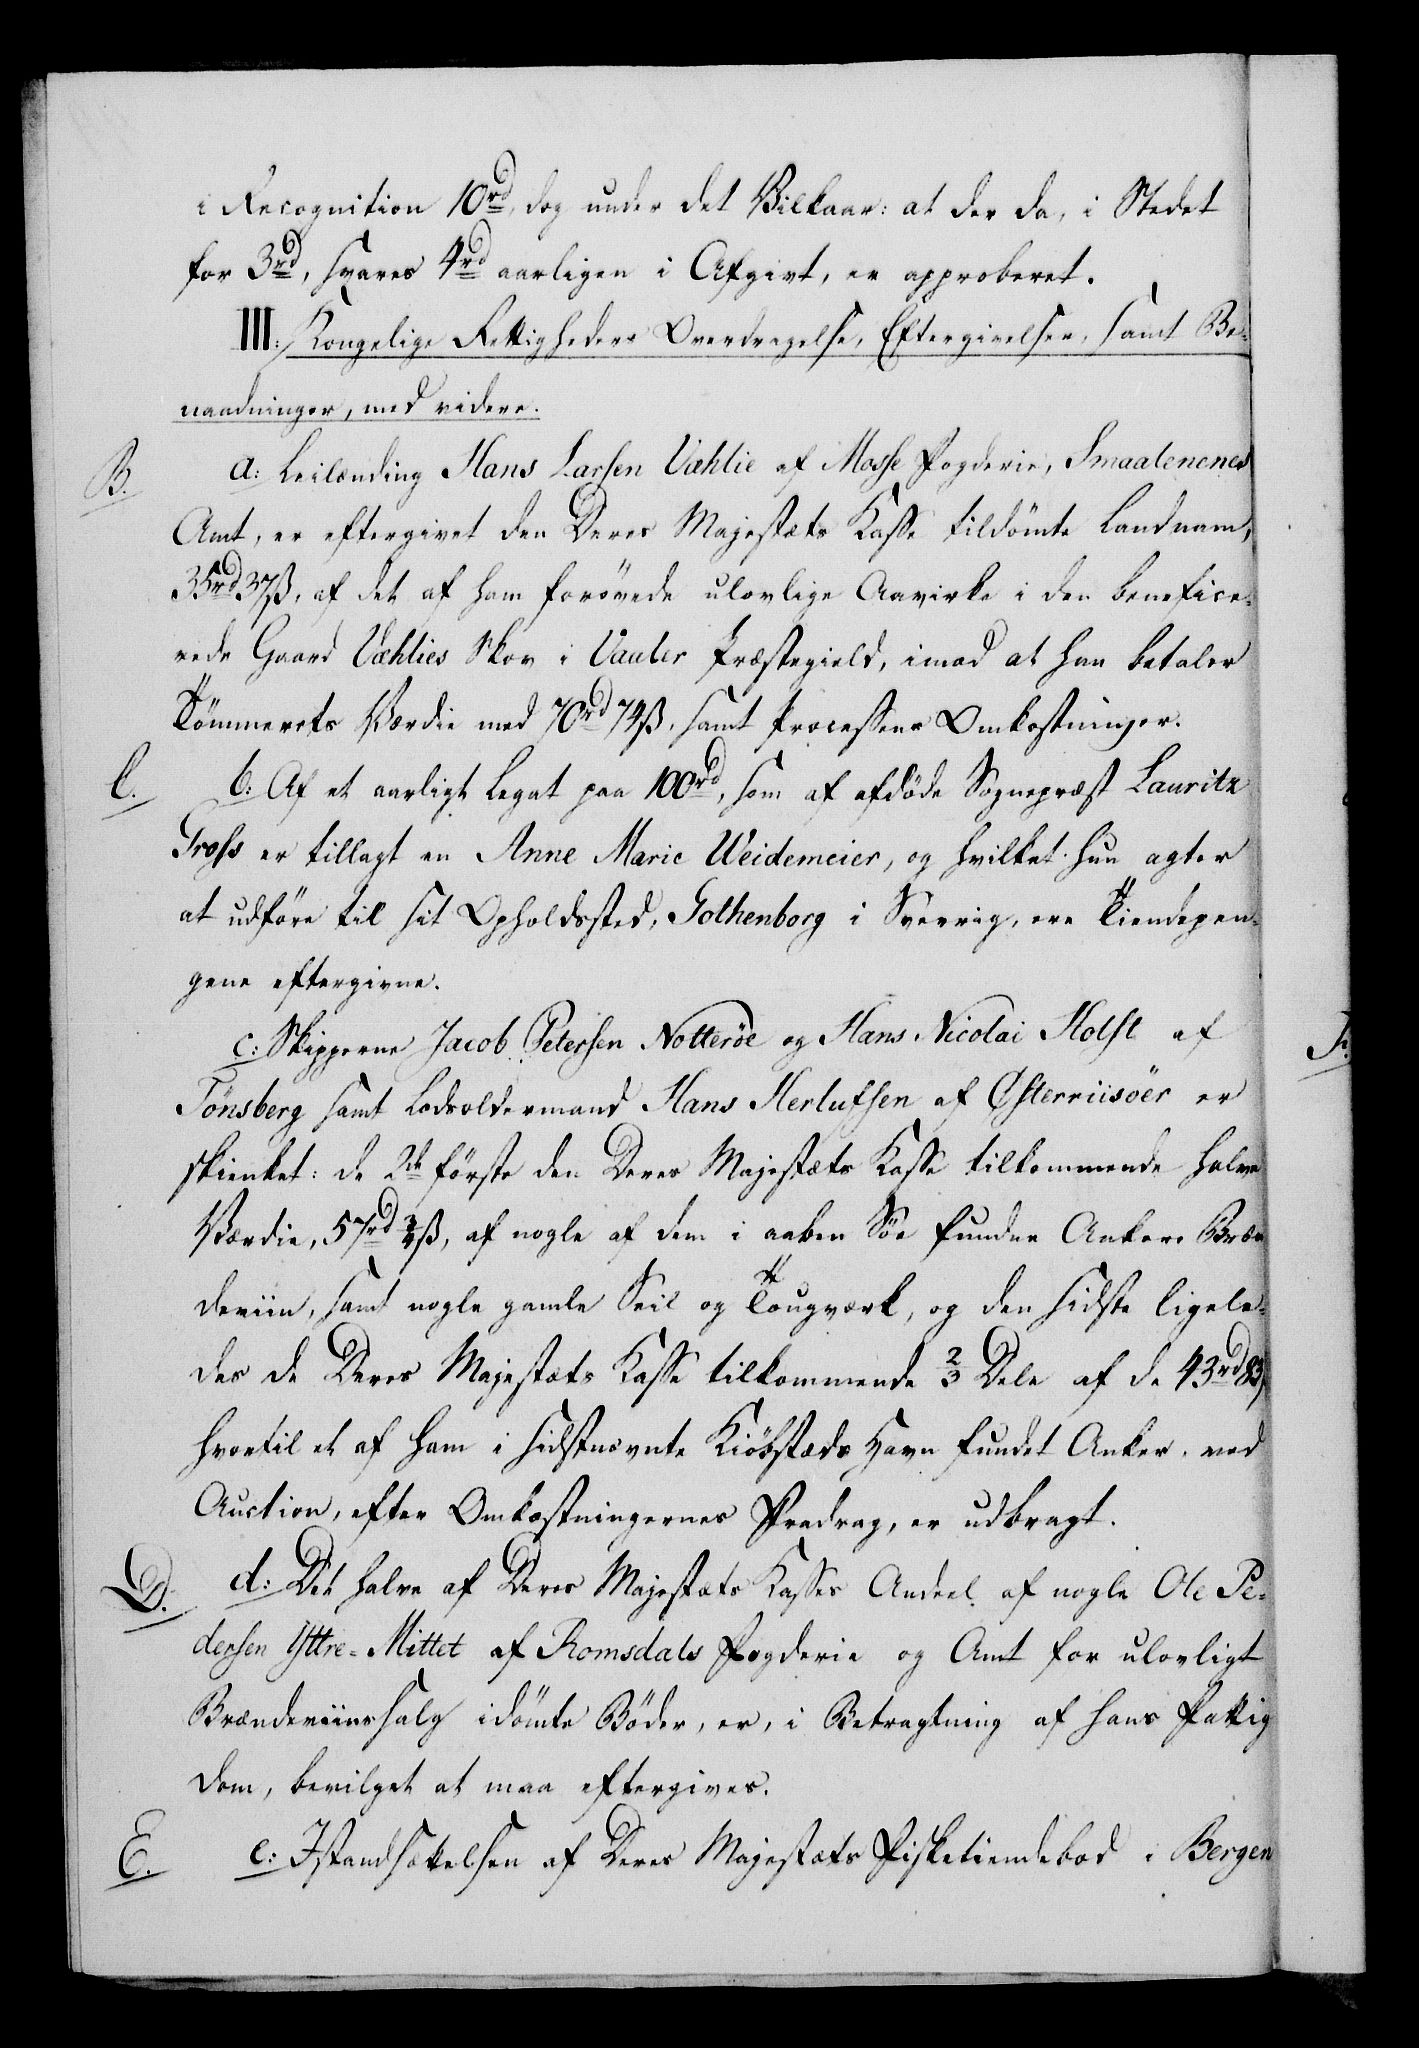 i Recognition 10rd, dog under det Vilkaar: at der da, i Stedet
for 3rd, svares 4rd aarligen i Afgivt, er approberet.
III: Kongelige Rettigheders Overdragelse, Eftergivelser, samt Be-
naadninger, med videre.
B.
a: Leilænding Hans Larsen Væhlie af Mosse Fogderie, Smaalenenes
Amt, er eftergivet den Deres Majestæts Kasse tildömte Landnam,
35rd 37ß, af det af ham forövede ulovlige Aavirke i den benefice-
rede Gaard Væhlies Skov i Vauler Præstegield, imod at han betaler
Tömmerets Værdie med 70rd 74ß, samt Processens Omkostninger.
C.
b: Af et aarligt Legat paa 100rd, som af afdöde Sognepræst Lauritz
Gross er tillagt en Anne Marie Weidemeier, og hvilket hun agter
at udföre til sit Opholdssted, Gothenborg i Sverrig, ere Tiendepen-
gene eftergivne.
c: Skipperne Jacob Petersen Notteröe og Hans Nicolai Holst af
Tönsberg samt Lodsoldermand Hans Herlufsen af Østerriisöer er
skienket: de 2de förste den Deres Majestæts Kasse tilkommende halve
Værdie, 57rd ¾ß, af nogle af dem i aaben Söe fundne Ankere Bræn
deviin, samt nogle gamle Seil og Tougværk, og den sidste ligele-
des de Deres Majestæts Kasse tilkommende 2/3 Dele af de 43rd 83ß
hvortil et af ham i sidstnævnte Kiöbstæds Havn fundet Anker, ved
Auction, efter Omkostningernes Fradrag, er udbragt.
D.
d: Det halve af Deres Majestæts Kasses Andeel af nogle Ole Pe-
dersen Yttre-Mittet af Romsdals Fogderie og Amt for ulovligt
Brændeviinssalg idömte Böder, er, i Betragtning af hans Fattig
dom, bevilget at maa eftergives.
E.
e: Istandsættelsen af Deres Majestæts Fisketiendebod i Bergen
F.